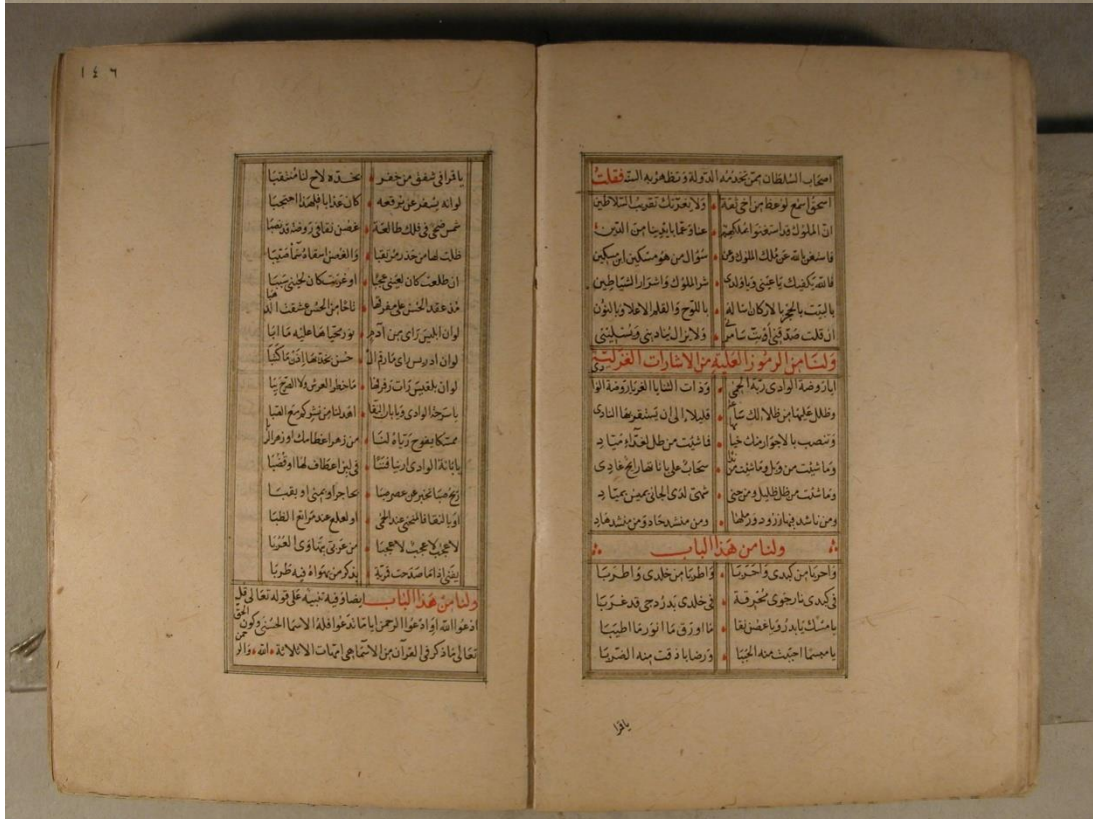 اصحاب السلطان بمن تخدمه الدولة وتظهر به السنه فقلت
اسحق اسمع لوعظ من اخي ثقة ولا يغرنك تقريب السلاطين
ان الملوك قد استغنوا بملكهم عنا وعما بايدينا من الدين
فاستغن بالله عن ملك الملوك وعن سؤال من هو مسكين ابن مسكين
فالله يكفيك يا عيني ويا ولدي شر الملوك واشرار الشياطين
بالبيت بالحجر بالاركان باللوح والقلم الاعلا وبالنون
ان قلت صدقني ولا يزال يناديني ويسليني
ولنا من الرموز العلية من الاشارات الغزلية
ايا روضة الوادي ربة الحمى وذات الثنايا الغر يا روضة الوادي
وظلل عليها من ظلالك ساعة قليلا الى ان يستقر بها النادي
وتنصب بالاجواز منك خيامها فما شئت من طل غذاء لمياد
وما شئت من وبل وما شئت من ندى سحاب على باناتها رايح غادي
وما شئت من ظل ظليل ومن جنى شهي لدى الجاني يميس بمياد
ومن ناشد فيها زرود ورملها ومن منشد حاد ومن منشد هاد
ولنا من هذا الباب
واحربا من كبدي واحربا واطربا من خلدي واطربا
في كبدي نار جوى محرقة في خلدي بدر دجى قد غربا
يا مسك يا بدر ويا غصن نقا ما اورق ما انور ما اطيبا
يا مبسما احببت منه الحببا ورضابا ذقت منه الضربا
ياقرا
١٤٦
ياقرا في شفق من خفر بخده لاح لنا منتقبا
لو انه يسفر عن برقعه كان عذابا فلهذا احتجبا
شمس ضحى في فلك طالعة غصن نقا في روضة قد نصبا
ظلت لها من حذر مرتقبا والغصن اسقاه سما صيبا
ان طلعت كان لعيني عجبا او غربت كان لحيني سببا
مذ عقد الحسن على مفرقها تاجا من الحسن عشقت الذهبا
لو ان ابليس راى من ادم نور محياها عليه ما ابا
لو ان ادريس راى ما رقم الـ حسن بخدها اذن ما كتبا
لو ان بلقيس رات رفرفها ما خطر العرش ولا الصرح ببا
يا سرحة الوادي ويا بان النقا اهد لنا من نشركم مع الصبا
ممسكا يفوح رياه لنا من زهر اعظامك او زهر الربا
يا بانة الوادي ارينا فننا في لين اعطاف لها او قضبا
ريح صبا تخبر عن عصر صبا بحاجر او بمنى او بقبا
او بالنقا فالمنحنى عند الحمى او لعلع عند مراتع الظبا
لا عجب لا عجب لا عجبا من عربي يتهاوى العربا
يفنى اذا ما صدحت قرية بذكر من يهواه فيه طربا
ولنا من هذا الباب ايضا وفيه تنبيه على قوله تعالى قل
ادعوا الله او ادعوا الرحمن ايا ما تدعوا فله الاسما الحسنى وكون الحق
تعالى ما ذكر في القران من الاسما هي امهات الا ثلاثة الله والرحمن